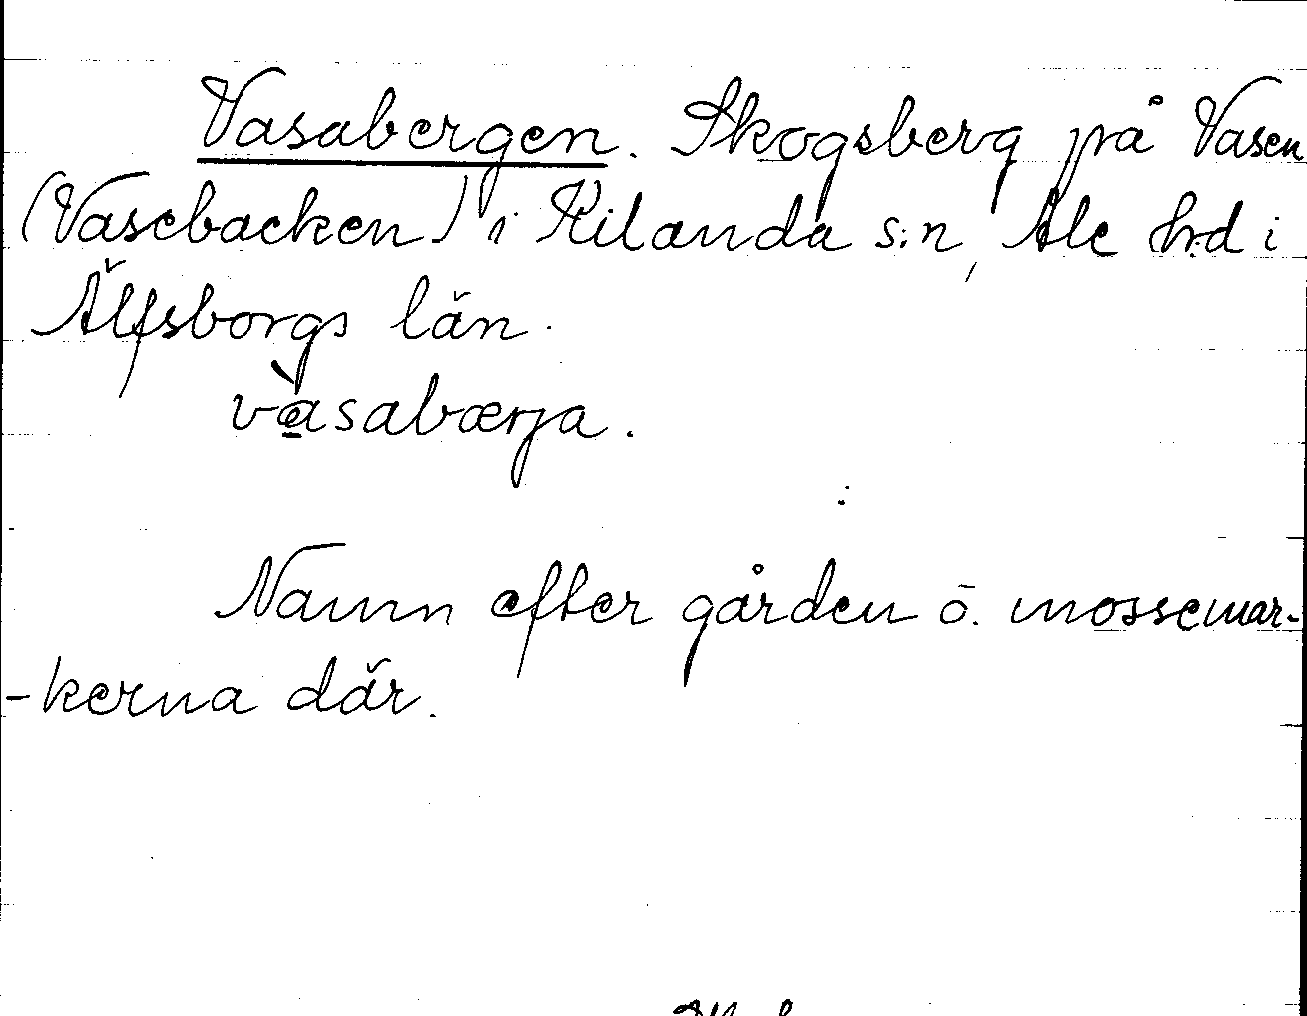 Vasabergen. Skogsberg på Vasen
(Vasebacken) i Kilanda s:n, Ale h:d i
Älfsborgs län.
vàsabærja.
Namn efter gården o. mossemar-
-kerna där.